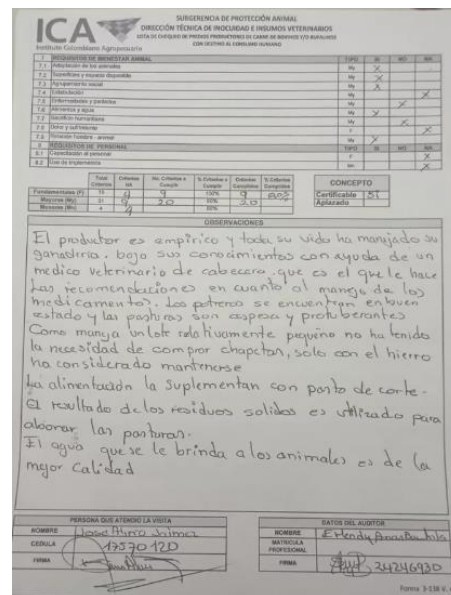 SUBGERENCIA DE PROTECCIÓN ANIMAL
ICA
DIRECCIÓN TÉCNICA DE INOCUIDAD E INSUMOS VETERINARIOS
LISTA DE CHEQUEO DE PREDIOS PRODUCTORES DE CARNE DE BOVINOS Y/O BUFALINOS
CON DESTINO AL CONSUMO HUMANO
Instituto Colombiano Agropecuario
7 REQUISITOS DE BIENESTAR ANIMAL TIPO SI NO NA
7.1 Adaptación de los animales My X
7.2 Superficies y espacio disponible My X
7.3 Agrupamiento social My X
7.4 Estabulación My X
7.5 Enfermedades y parásitos My X
7.6 Alimentos y agua My X
7.7 Sacrificio humanitario My X
7.8 Dolor y sufrimiento F X
7.9 Relación hombre - animal My X
8 REQUISITOS DE PERSONAL TIPO SI NO NA
8.1 Capacitación al personal F X
8.2 Uso de implementos X
Total Criterios Criterios NA No. Criterios a Cumplir % Criterios a Cumplir Criterios Cumplidos % Criterios Cumplidos
Fundamentales (F) 9 9 100% 9
Mayores (My) 31 9 20 20
Menores (Mn) 4 4
CONCEPTO
Certificable Si
Aplazado
OBSERVACIONES
El productor es empirico y toda su vida ha manijado su
ganaderia. bajo sus conocimientos con ayuda de un
medico veterinario de cabecera. que es el que le hace
Las recomendaciones en cuanto al manejo de los
medicamentos. Los potreros se encuentran en buen
estado y las pasturas son espesa y protuberantes
Como maneja un lote relativamente pequeño no ha tenido
la necesidad de comprar chapetas, solo con el hierro
ha considerado mantenerse
La alimentación la suplementan con pasto de corte.
El resultado de los residuos solidos es utilizado para
abonar las pasturas.
El agua que se le brinda a los animales es de la
mejor calidad
PERSONA QUE ATENDIO LA VISITA
NOMBRE Jose
CEDULA 17570120
FIRMA
DATOS DEL AUDITOR
NOMBRE
MATRICULA PROFESIONAL
FIRMA 24246930
Forma 3-138 V.